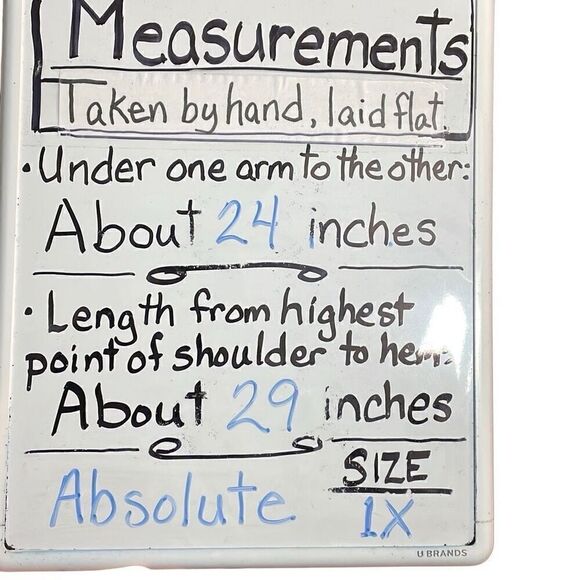 Measurements
Taken by hand, laid flat.
• Under one arm to the other:
About 24 inches
• Length from highest
point of shoulder to hem:
About 29 inches
SIZE
Absolute 1X
U BRANDS